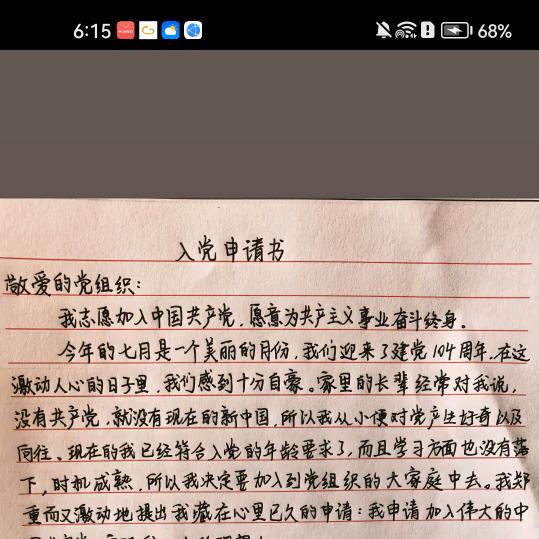 6:15
68%
入党申请书
敬爱的党组织：
我志愿加入中国共产党，愿意为共产主义事业奋斗终身。
今年的七月是一个美丽的月份，我们迎来了建党104周年，在这
激动人心的日子里，我们感到十分自豪。家里的长辈经常对我说，
没有共产党，就没有现在的新中国，所以我从小便对党产生好奇以及
向往、现在的我已经符合入党的年龄要求了，而且学习方面也没有落
下，时机成熟，所以我决定要加入到党组织的大家庭中去。我郑
重而又激动地提出我藏在心里已久的申请：我申请加入伟大的中